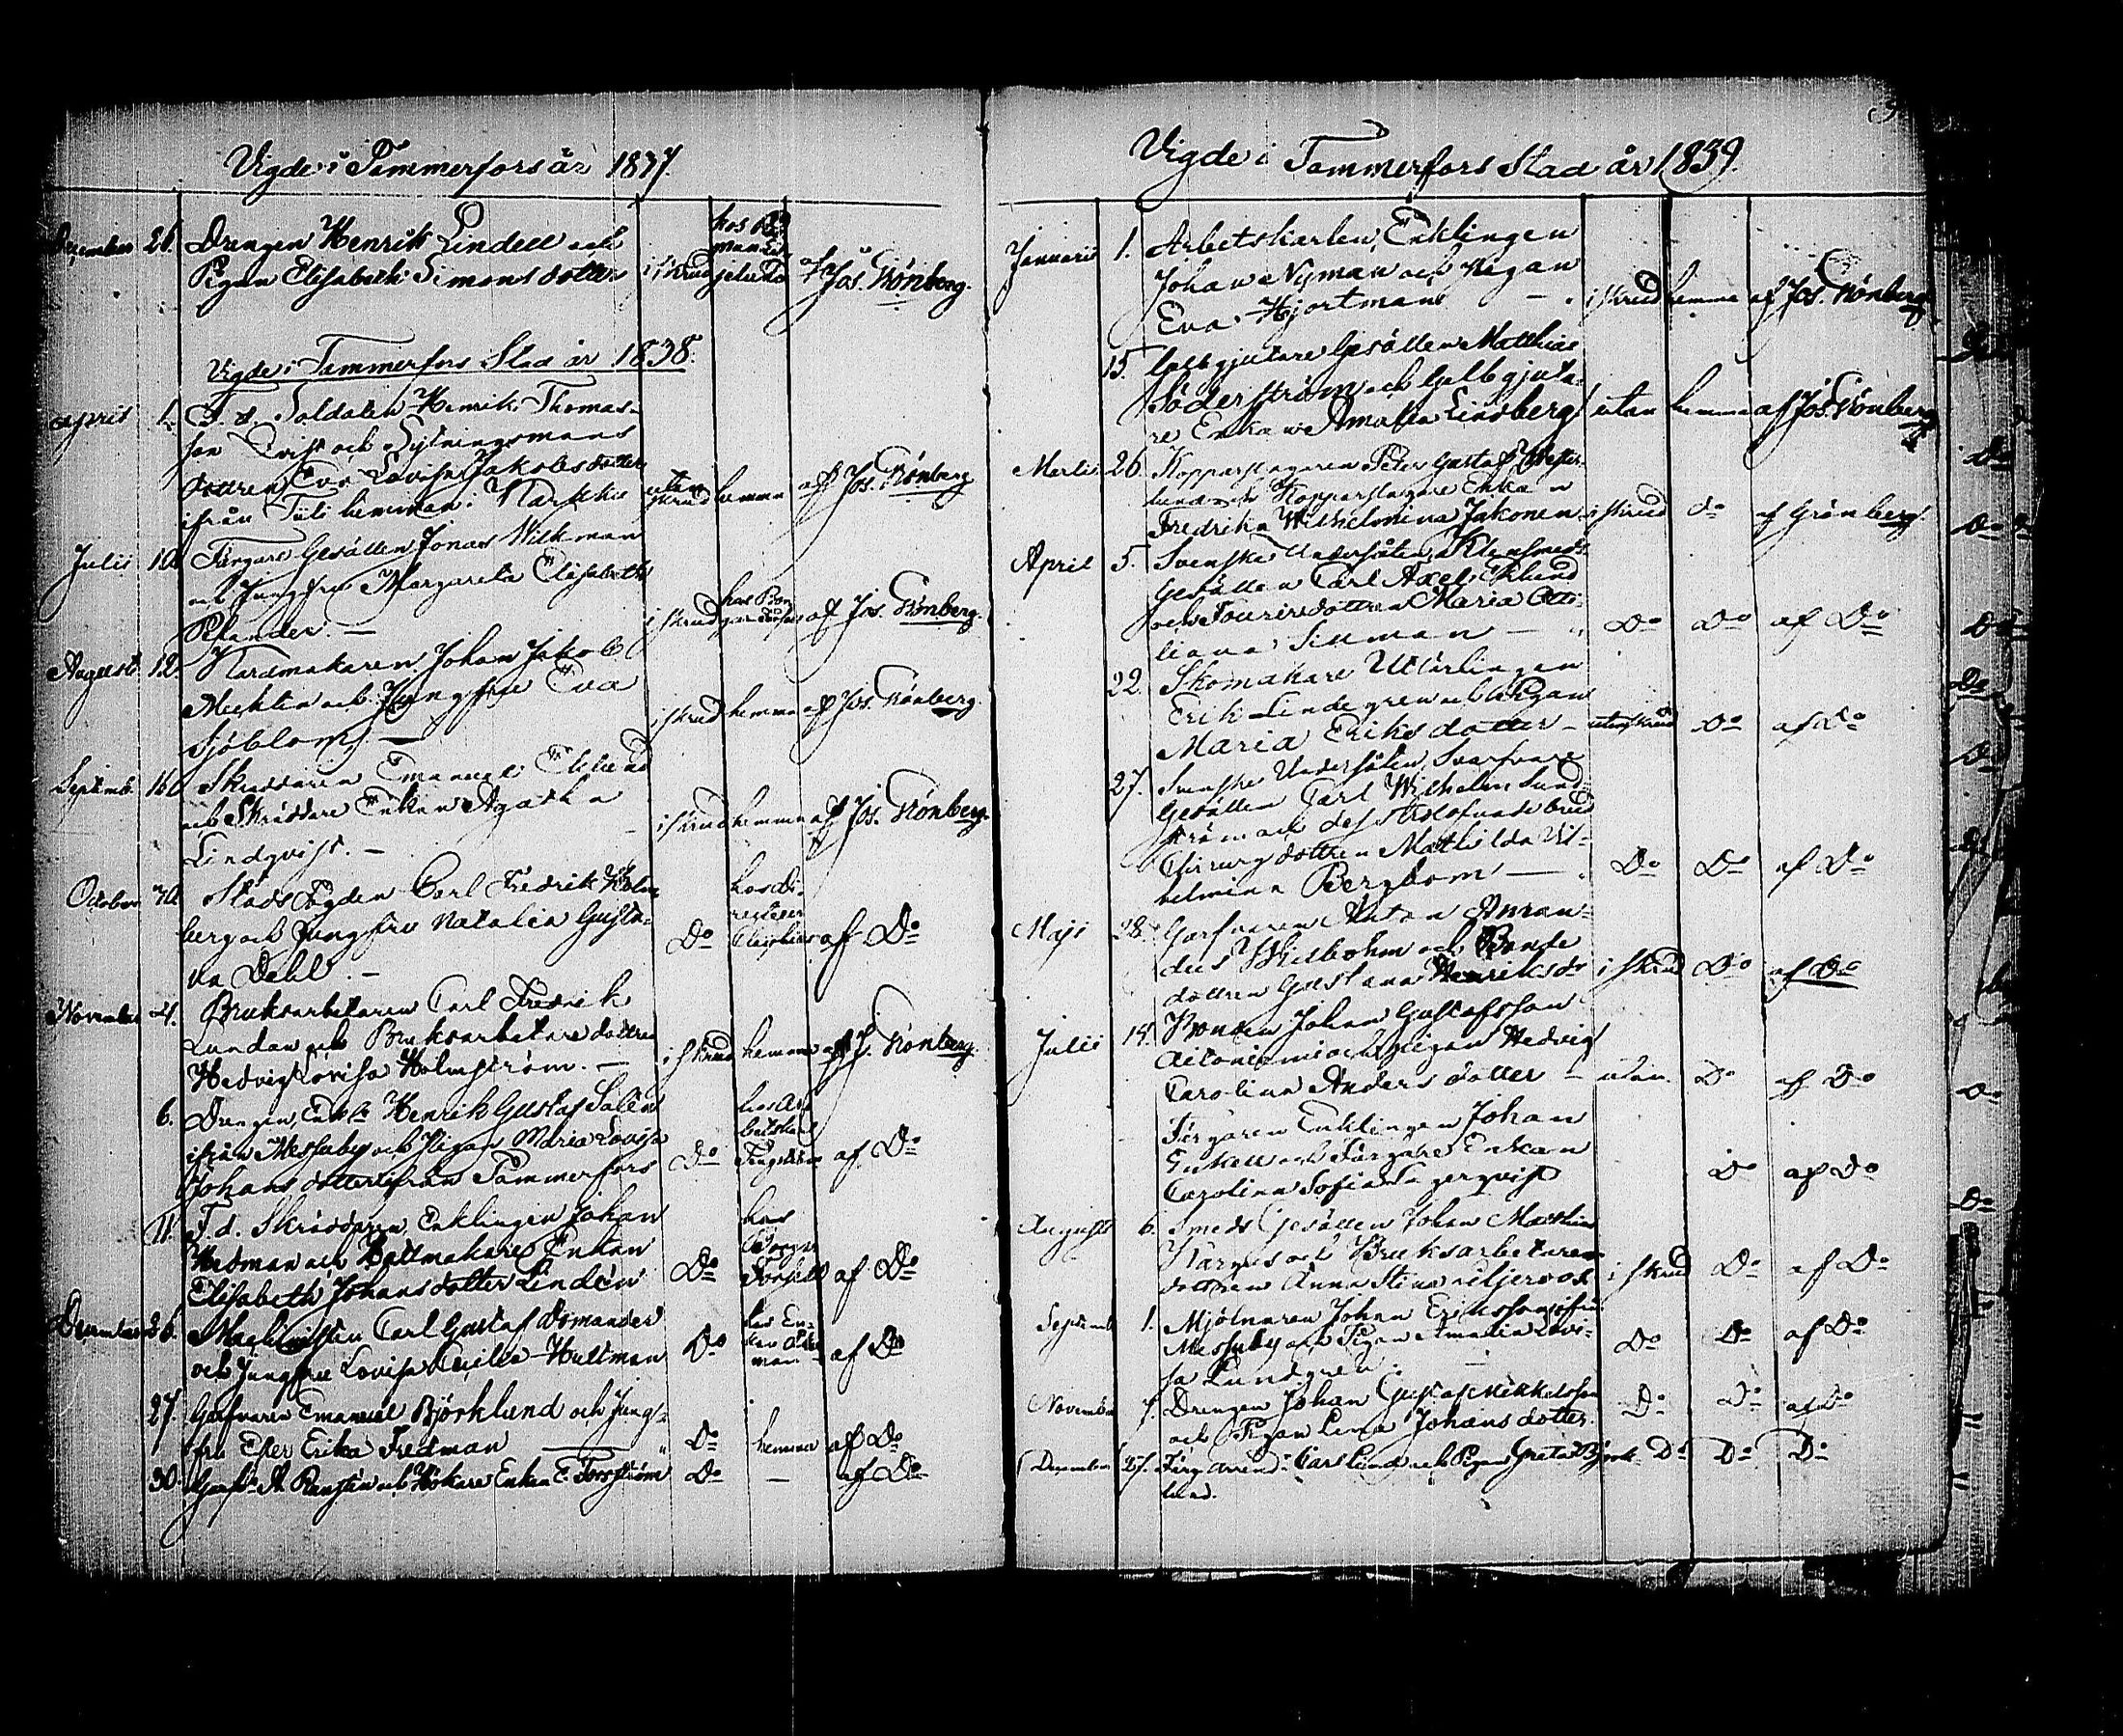 Vigde i Tammerfors år 1837.
December 26. Drengen Henrik Lindell och
Pigan Elisabeth Simonsdotter i skrud af Jos. Grönberg.
Vigde i Tammerfors Stad år 1838.
April 1. F. d. Soldaten Henrik Thomas-
son Qvist och Sytningsmans
dottren Eva Lovisa Jakobsdotter
ifrån hemman i Karkku utan skrud hemma af Jos. Grönberg
Julii 10. Färgare Gesällen Jonas Wikman
och Jungfru Margareta Elisabeth
i skrud af Jos. Grönberg.
Augusti 12. Kardmakaren Johan Jakob
Mechlin och Jungfru Eva
Sjöblom. — i skrud hemma af Jos. Grönberg.
Septemb. 16. Skräddaren Emanuel Eklund
och Skräddare Enkan Agatha
Lindqvist. — i skrud hemma af Jos. Grönberg.
October 30. Stads Fogden Carl Fredrik Holm
berg och Jungfru Natalia Gusta-
va Dahl. — Do af Do
November 4. Bruksarbetaren Carl Fredrik
Lundan och Bruksarbetare dottren
Hedvig Lovisa Holmström. — i skrud hemma af J. Grönberg.
6. Drengen, Enkl. Henrik Gustaf Salén
ifrån Messuby och Pigan Maria Lovisa
Johansdotter ifrån Tammerfors Do af Do
11. F. d. Skräddaren, Enklingen Johan
Hedman och Hattmakare Enkan
Elisabeth Johansdotter Lindén Do hos Borgar Forsell af Do
December 26. Carl Gustaf Osmander
och Jungfru Lovisa Cecilia Hultman Do af Do
27. Garfvaren Emanuel Björklund och Jung-
fru Ester Erika Fredman Do hemma af Do
30. Garfv. A. Renstén och Hökare Enkan E. Forsström Do — af Do
Vigde i Tammerfors Stad år 1839.
Januarii 1. Arbetskarlen, Enklingen
Johan Nyman och Pigan
Eva Hjortman — i skrud hemma af Jos. Grönberg
15. Gelbgjutare Gesällen Matthias
Söderström och Gelbgjuta-
re Enkan Amalia Lindberg utan hemma af Jos. Grönberg
Martii 26. Kopparslagaren Peter Gustaf Wester-
lund och Kopparslagare Enkan
Fredrika Wilhelmina Jakonen i skrud do af Grönberg.
April 5. Svenske Undersåten, Klensmeds
Gesällen Carl Axel Eklund
och Fourirsdottren Maria Otti-
liana Sillman — Do Do af Do
22. Skomakare Utlärlingen
Erik Lindegren och Pigan
Maria Eriksdotter — utan skrud Do af Do
27. Svenske Undersåten, Svarfvare
Gesällen Carl Wilhelm Sund-
ström och dess trolofvade brud
Chirurg dottren Mathilda Wil-
helmina Bergbom — Do Do af Do
Maji 28. Garfvaren Anton Aman-
deus Wilbohm och Bonde
dottren Gustava Henriksdr i skrud Do af Do
Julii 14. Bonden Johan Gustafsson
och Pigan Hedvig
Carolina Andersdotter — utan Do af Do
Färgaren Enklingen Johan
Enkell och Färgare Enkan
Carolina Sofia Lagerqvist Do af Do
Augusti 6. Smeds Gesällen Johan Matthias
och Bruksarbetare
dottren Anna Stina Iljeroos i skrud Do af Do
Septemb. 1. Mjölnaren Johan Eriksson ifrån
Messuby och Pigan Amalia Lovi-
sa Lundgren. Do Do af Do
November 7. Drengen Johan Gustaf Mikkelsson
och Pigan Lena Johansdotter. Do Do af Do
December 27. Carl Lund och Pigan Greta Björk- Do Do Do
lund.